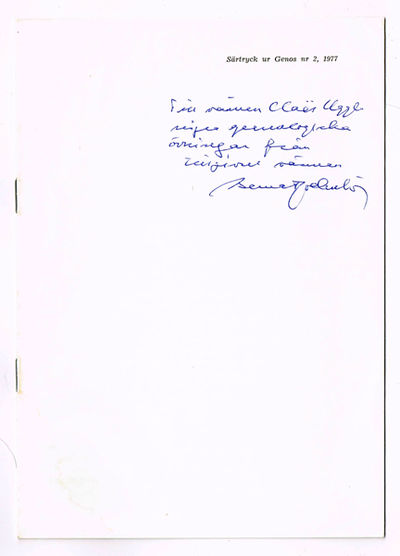 Särtryck ur Genos nr 2, 1977
Till vännen Claës Uggla
några genealogiska
övningar från
vännen